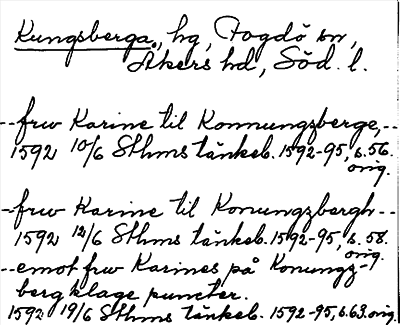 Kungsberga, hg, Fogdö sn,
Åkers hd, Söd. l.
--frw Karine til Konnungzberge,--
1592 10/6 Sthms tänkeb. 1592-95, s. 56.
orig.
--frw Karine til Konungzbergh--
1592 12/6 Sthms tänkeb. 1592-95, s. 58.
orig.
--emot frw Karines på Konungz-
berg klage puncter.
1592 19/6 Sthms tänkeb. 1592-95, s. 63. orig.